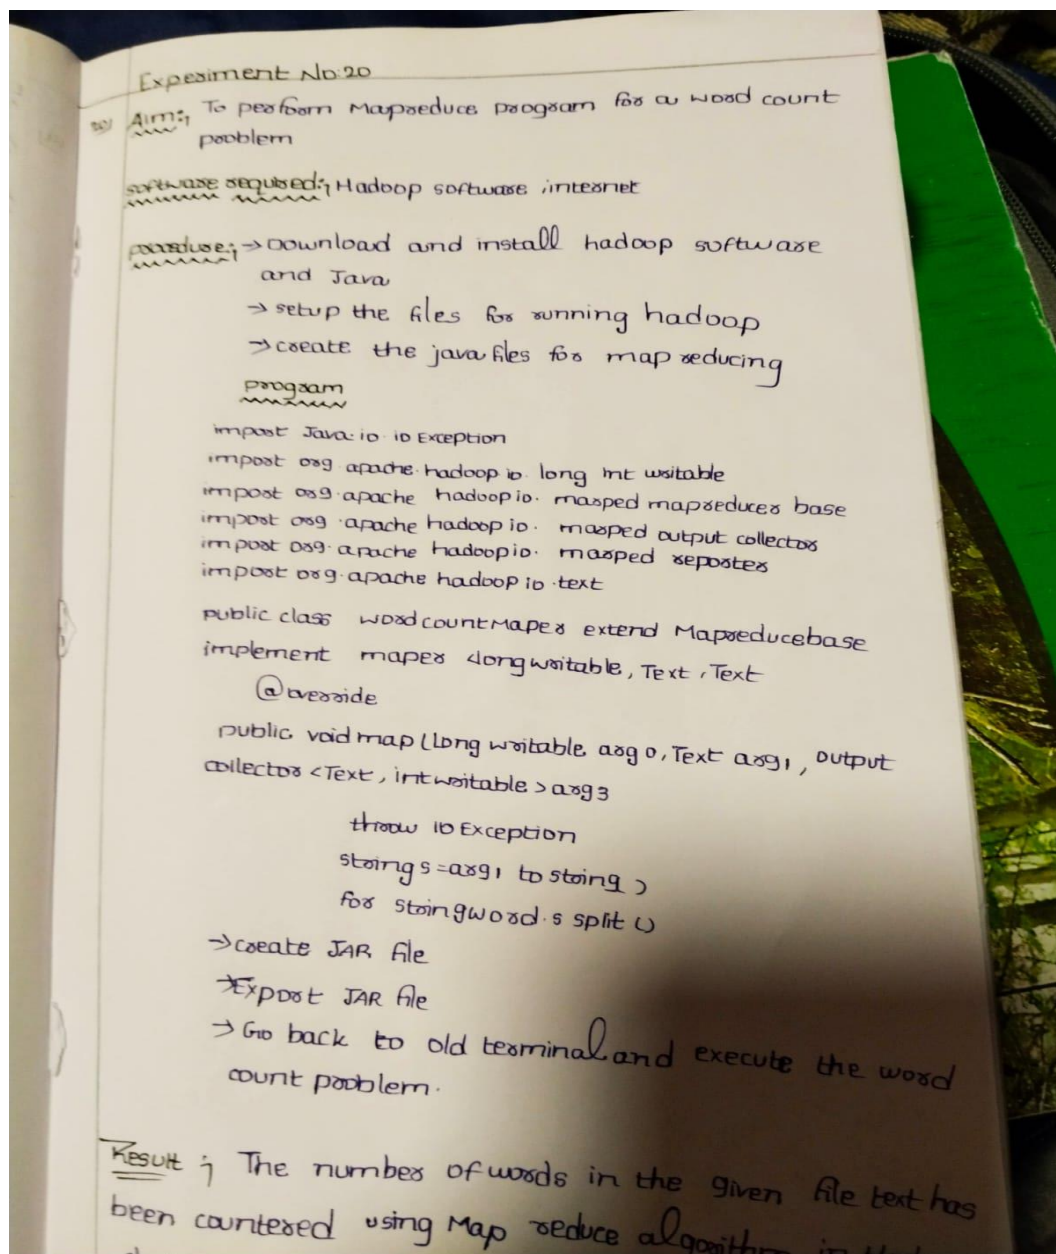 Experiment No:20
20) Aim:, To perform Mapreduce program for a word count
problem
software required:, Hadoop software, internet
procedure:, → Download and install hadoop software
and Java
→ setup the files for running hadoop
→ create the java files for map reducing
program
import Java.io.io Exception
import org.apache.hadoop io. long int writable
import org.apache hadoop io. marped mapreducer base
import org.apache hadoop io. marped output collector
import org.apache hadoop io. marped reporter
import org.apache hadoop io .text
public class wordcountMaper extend Mapreducebase
implement maper <longwritable, Text, Text
@override
public void map (Long writable arg 0, Text arg1, output
collector <Text, intwritable> arg3
throw io Exception
string s=arg1 to string )
for string word.s split ()
→ create JAR file
→ Export JAR file
→ Go back to old terminal and execute the word
count problem.
Result ; The number of words in the given file text has
been countered using Map reduce algorithm in